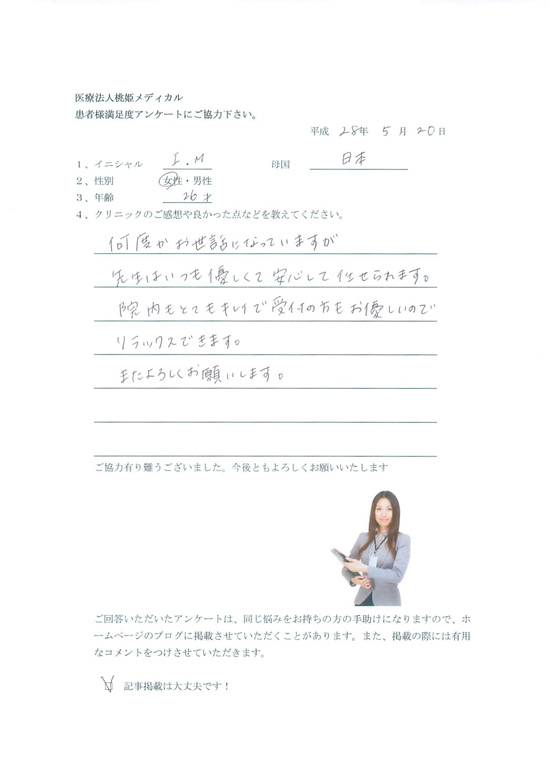 医療法人桃姫メディカル
患者様満足度アンケートにご協力下さい。
平成 28年 5 月 20日
1、イニシャル I.M 母国 日本
2、性別 女性・男性
3、年齢 26才
4、クリニックのご感想や良かった点などを教えてください。
何度かお世話になっていますが
先生はいつも優しくて安心して任せられます。
院内もとてもキレイで受付の方もお優しいので
リラックスできます。
またよろしくお願いします。
ご協力有り難うございました。今後ともよろしくお願いいたします
ご回答いただいたアンケートは、同じ悩みをお持ちの方の手助けになりますので、ホ
ームページのブログに掲載させていただくことがあります。また、掲載の際には有用
なコメントをつけさせていただきます。
記事掲載は大丈夫です！